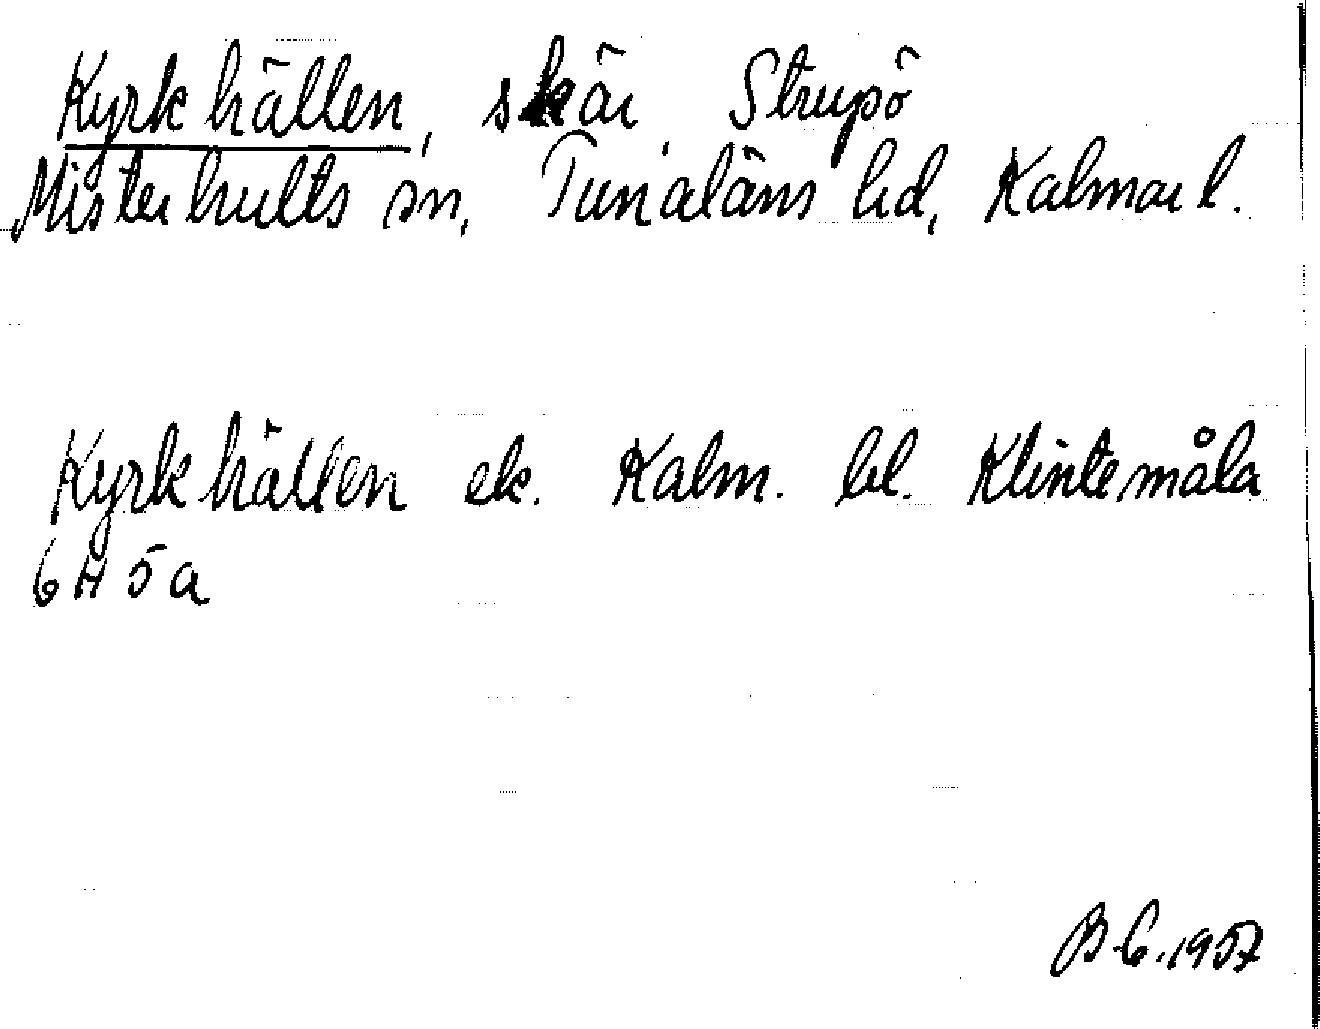 Kyrkhällen, skär Strupö
Misterhults sn, Tunaläns hd, Kalmar l.
Kyrkhällen ek. Kalm. bl. Klintemåla
6H 5a
B.G. 1957